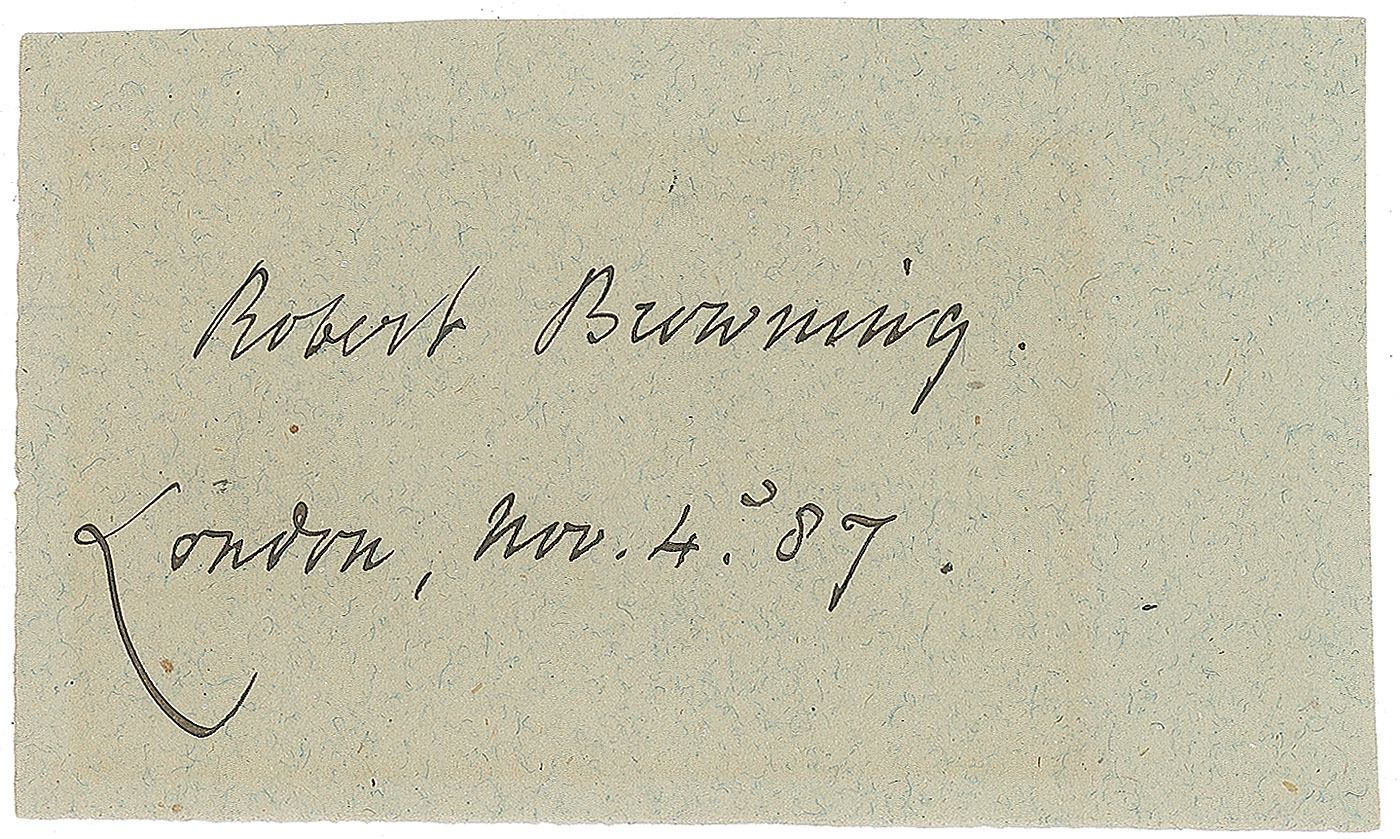 Robert Browning.
London, Nov. 4. '87.